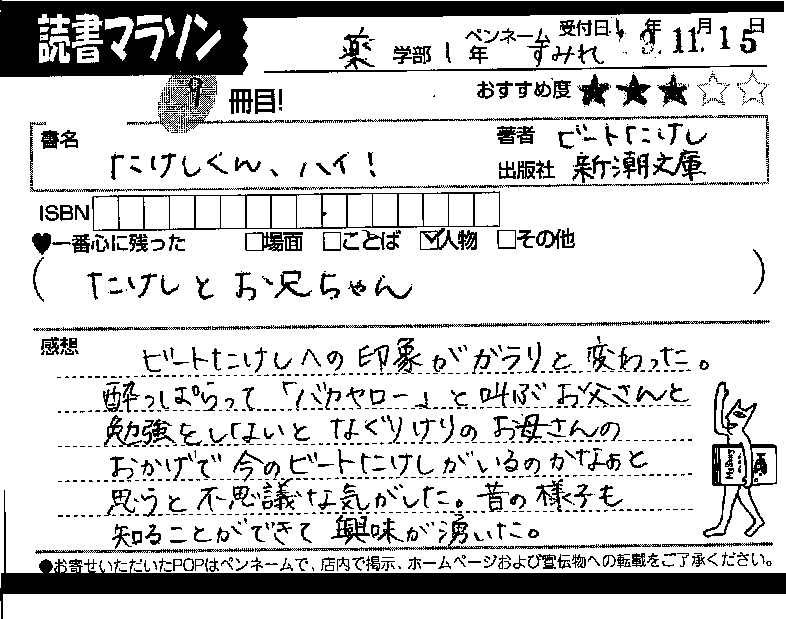 読書マラソン
薬 学部 1 年 ペンネーム すみれ 受付日 '9年 11.月 15日
9 冊目!
おすすめ度 ★★★☆☆
書名 たけしくん、ハイ!
著者 ビートたけし
出版社 新潮文庫
ISBN
♥一番心に残った □場面 □ことば ☑人物 □その他
(たけしとお兄ちゃん)
感想
ビートたけしへの印象がガラリと変わった。
酔っぱらって「バカヤロー」と叫ぶお父さんと
勉強をしないとなぐりけりのお母さんの
おかげで今のビートたけしがいるのかなぁと
思うと不思議な気がした。昔の様子も
知ることができて興味が湧いた。
●お寄せいただいたPOPはペンネームで、店内で掲示、ホームページおよび宣伝物への転載をご了承ください。